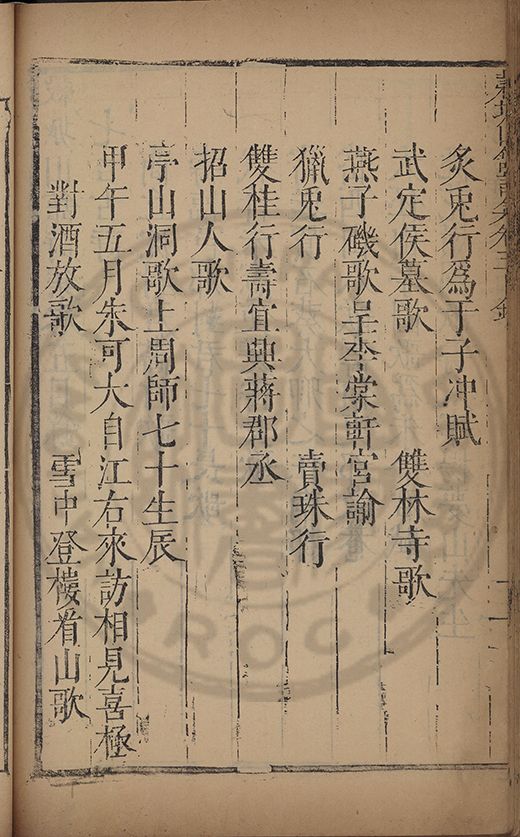 炙兎行爲于子冲賦
武定侯墓歌　雙林寺歌
燕子磯歌呈李棠軒宮諭
獵兎行　賣珠行
雙桂行壽宜興蔣郡丞
招山人歌
亭山洞歌上周師七十生辰
甲午五月朱可大自江右來訪相見喜極
對酒放歌　雪中登樓看山歌